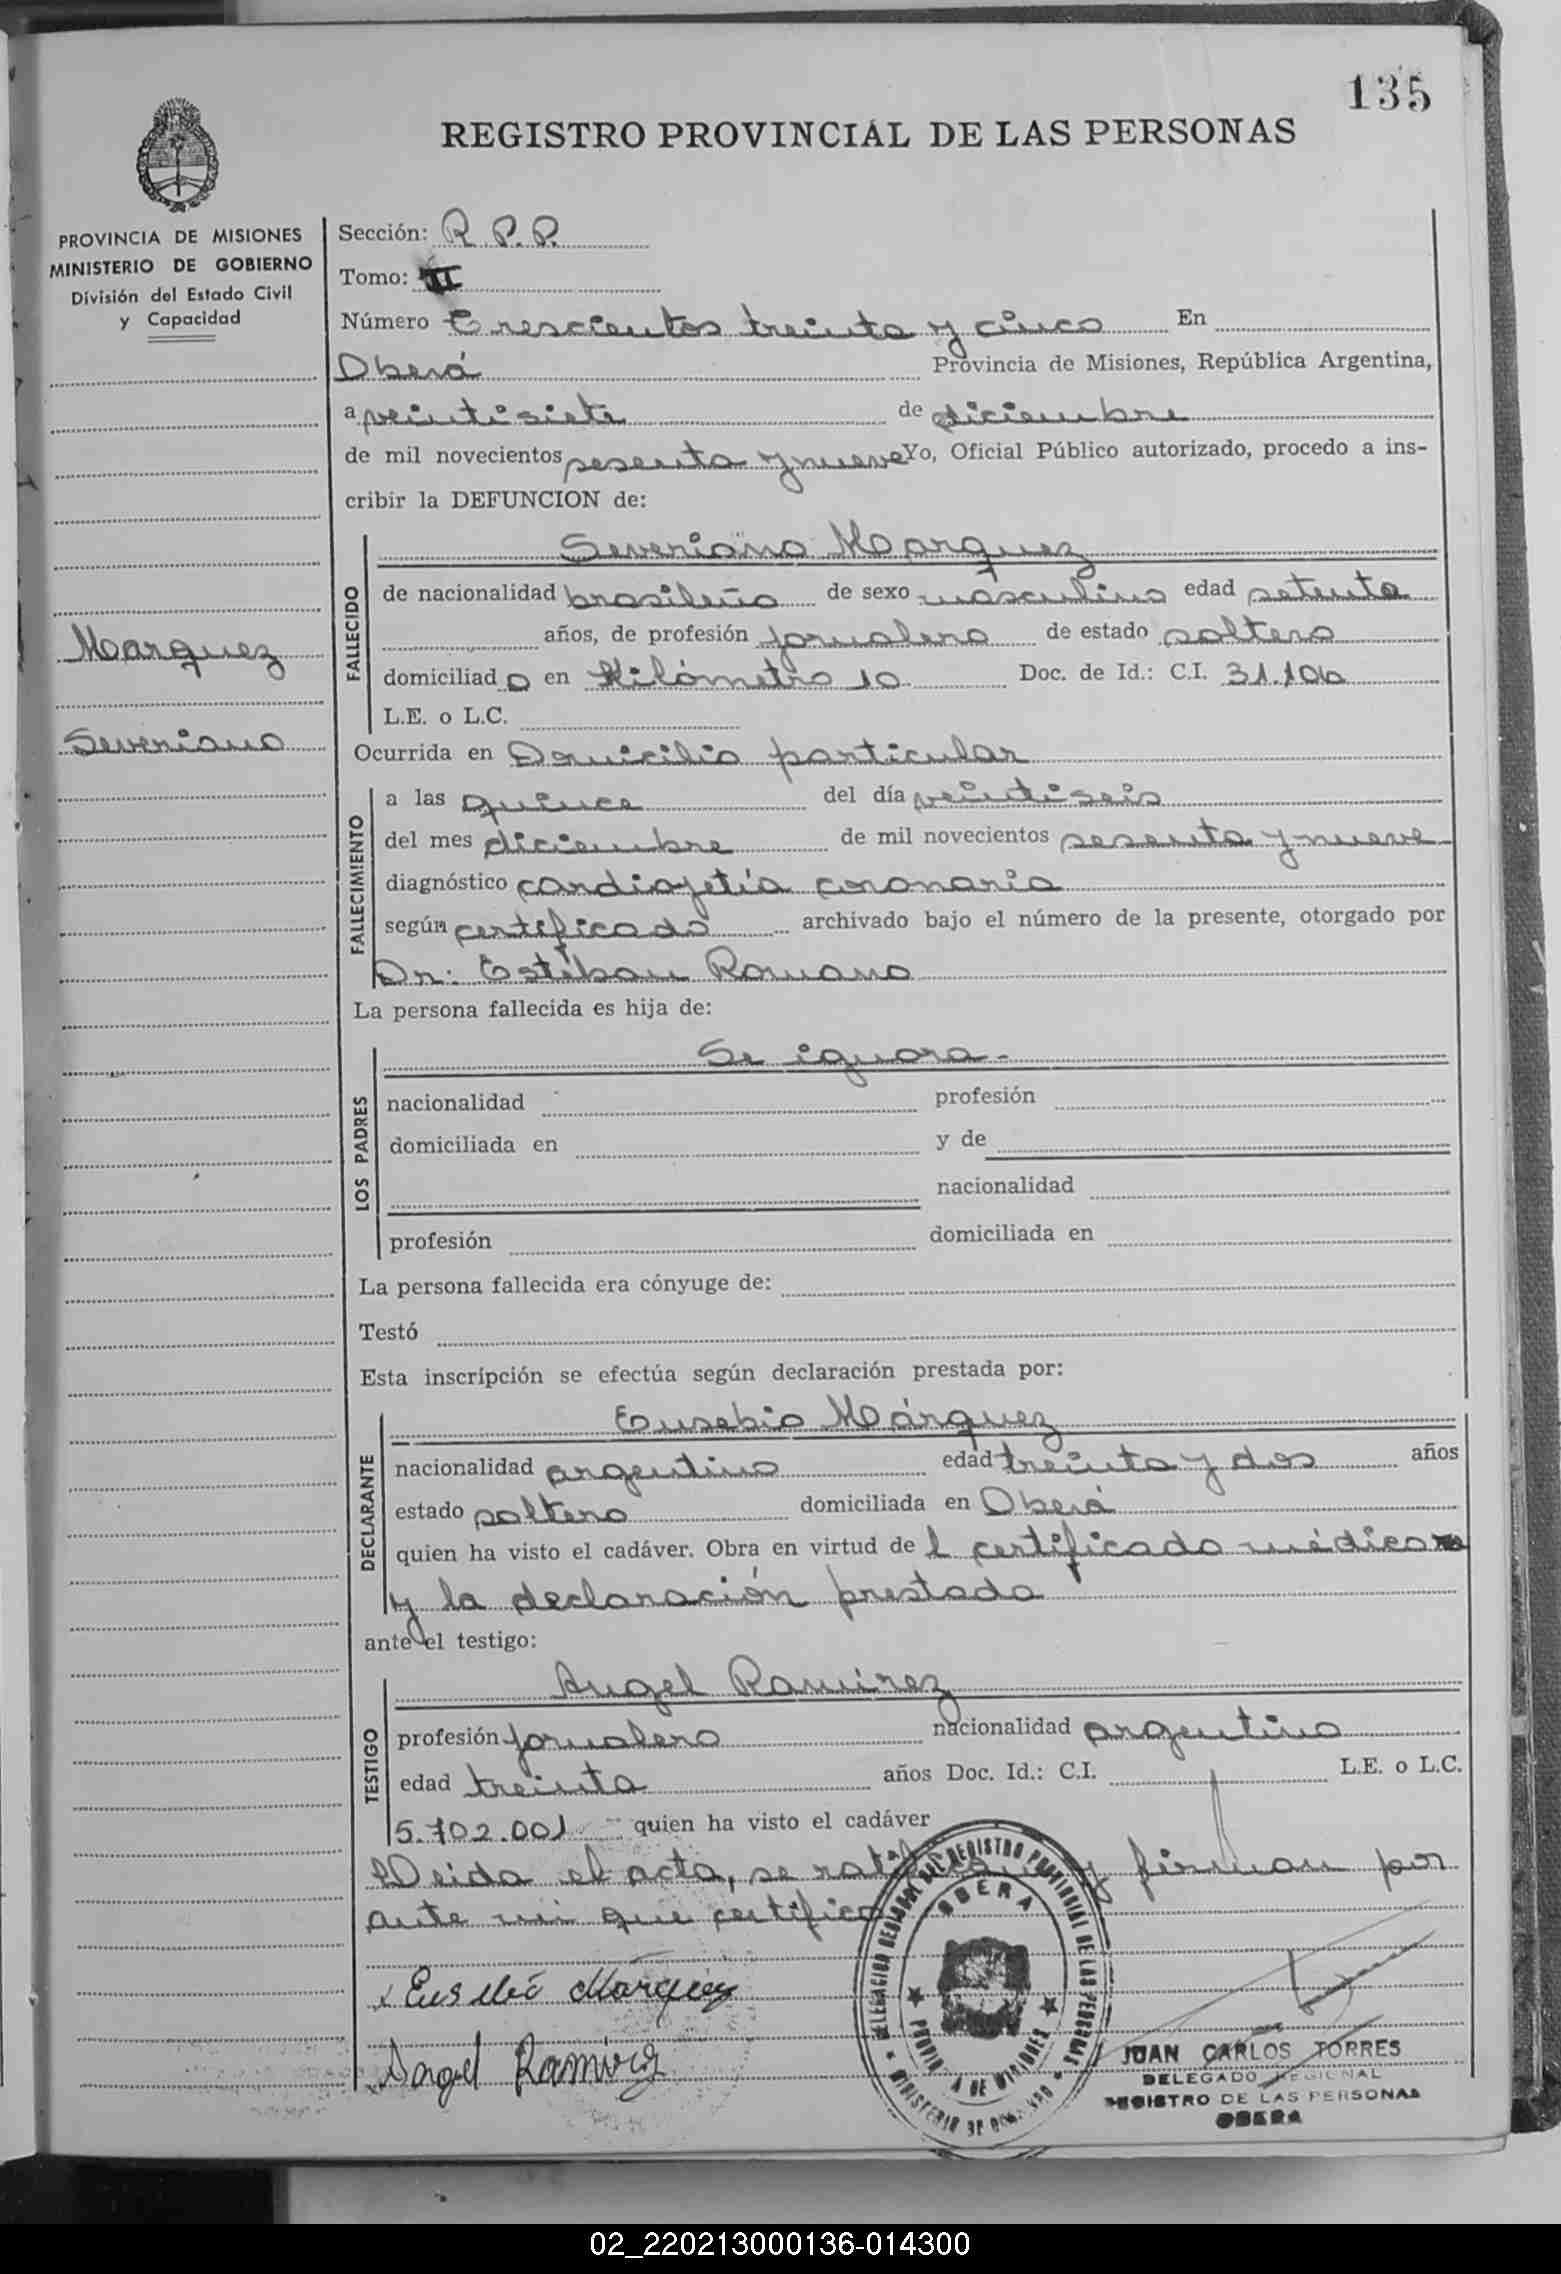 135
REGISTRO PROVINCIAL DE LAS PERSONAS
PROVINCIA DE MISIONES
MINISTERIO DE GOBIERNO
División del Estado Civil
y Capacidad
Marquez
Severiano
Sección: R P.P.
Tomo: II
Número Trescientos treinta y cinco En
Oberá Provincia de Misiones, República Argentina,
a veintisiete de diciembre
de mil novecientos sesenta y nueve Yo, Oficial Público autorizado, procedo a ins-
cribir la DEFUNCION de:
Severiano Marquez
FALLECIDO
de nacionalidad brasileño de sexo masculino edad setenta
años, de profesión jornalero de estado soltero
domiciliado en Kilómetro 10 Doc. de Id.: C.I. 31.106
L.E. o L.C.
Ocurrida en Domicilio particular
FALLECIMIENTO
a las quince del día veintiseis
del mes diciembre de mil novecientos sesenta y nueve
diagnóstico coronaria
según certificado archivado bajo el número de la presente, otorgado por
Dr: Estiban Romano
La persona fallecida es hija de:
LOS PADRES
Se ignora.-
nacionalidad profesión
domiciliada en y de
nacionalidad
profesión domiciliada en
La persona fallecida era cónyuge de:
Testó
Esta inscripción se efectúa según declaración prestada por:
DECLARANTE
Eusebio Márquez
nacionalidad argentino edad treinta y dos años
estado soltero domiciliada en Oberá
quien ha visto el cadáver. Obra en virtud de l certificado médico
y la declaración prestada
ante el testigo:
TESTIGO
Angel Ramirez
profesión jornalero nacionalidad argentino
edad treinta años Doc. Id.: C.I. L.E. o L.C.
5.702.001 quien ha visto el cadáver
Leida el acta, se ratifican y firman por
ante mi que certifico
Eusebio Márquez
Angel Ramirez
DELEGACION REGIONAL DEL REGISTRO PROVINCIAL DE LAS PERSONAS
OBERA
PROVINCIA DE MISIONES
MINISTERIO DE GOBIERNO
JUAN CARLOS TORRES
DELEGADO REGIONAL
REGISTRO DE LAS PERSONAS
OBERA
02_220213000136-014300